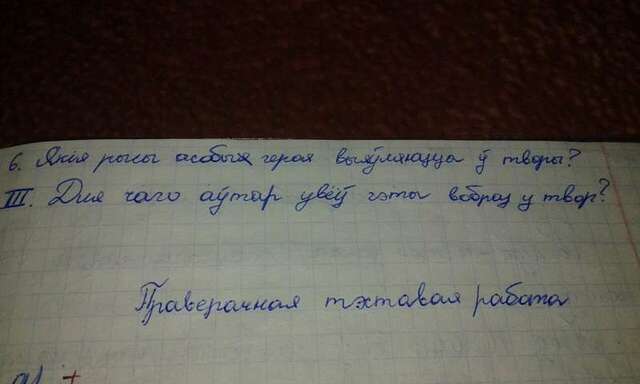 6. Якія рысы асобыя героя выяўляюцца ў творы?
III. Для чаго аўтар увёў гэты вобраз у твор?
Праверачная тэхтавая работа